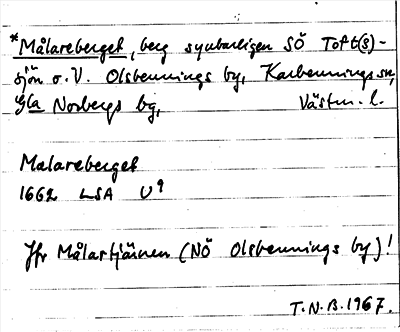 *Målareberget, berg synbarligen SÖ Toft(s)-
sjön o. V. Olsbennings by, Karbennings sn,
Gla Norbergs bg, Västm. l.
Malareberget
1662 LSA U⁹
Jfr Målartjärnen (NÖ Olsbennings by)!
T.N.B. 1967.